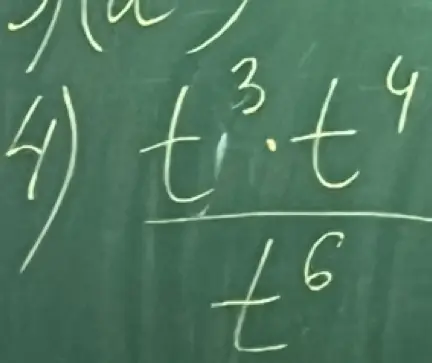 4) t³ · t⁴
t⁶